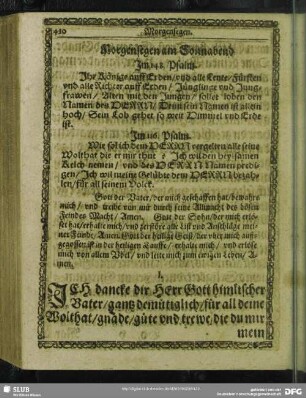 420 Morgensegen.
Morgensegen am Sonnabend
Im 148. Psalm.
Ihr Könige auff Erden / vnd alle Leute / Fürsten
vnd alle Richter auff Erden / Jünglinge vnd Jung-
frawen / Alten mit den Jungen / sollet loben den
Namen des HERRN / Denn sein Namen ist allein
hoch / Sein Lob gehet so weit Himmel vnd Erde
ist.
Im 116. Psalm.
Wie sol ich dem HERRN vergelten alle seine
Wolthat die er mir thut / Ich wil den heylsamen
Kelch nemen / vnd des HERRN Namen predi-
gen / Ich wil meine Gelübde dem HERRN beza-
len / für all seinem Volck.
Gott der Vater / der mich geschaffen hat / bewahre
mich / vnd treibe von mir durch seine Allmacht des bösen
Feindes Macht / Amen. Gott der Sohn / der mich erlö-
set hat / erhalte mich / vnd zerstöre alle List vnd Anschläge mei-
ner Feinde / Amen. Gott der heilige Geist / der vber mich auß-
gegossen ist in der heiligen Tauffe / erhalte mich / vnd erlöse
mich von allem Vbel / vnd leite mich zum ewigen Leben / A-
men.
I.
ICH dancke dir HErr Gott himlischer
Vater / gantz demütiglich / für all deine
Wolthat / gnade / güte vnd trewe, die du mir
mein
SLUB